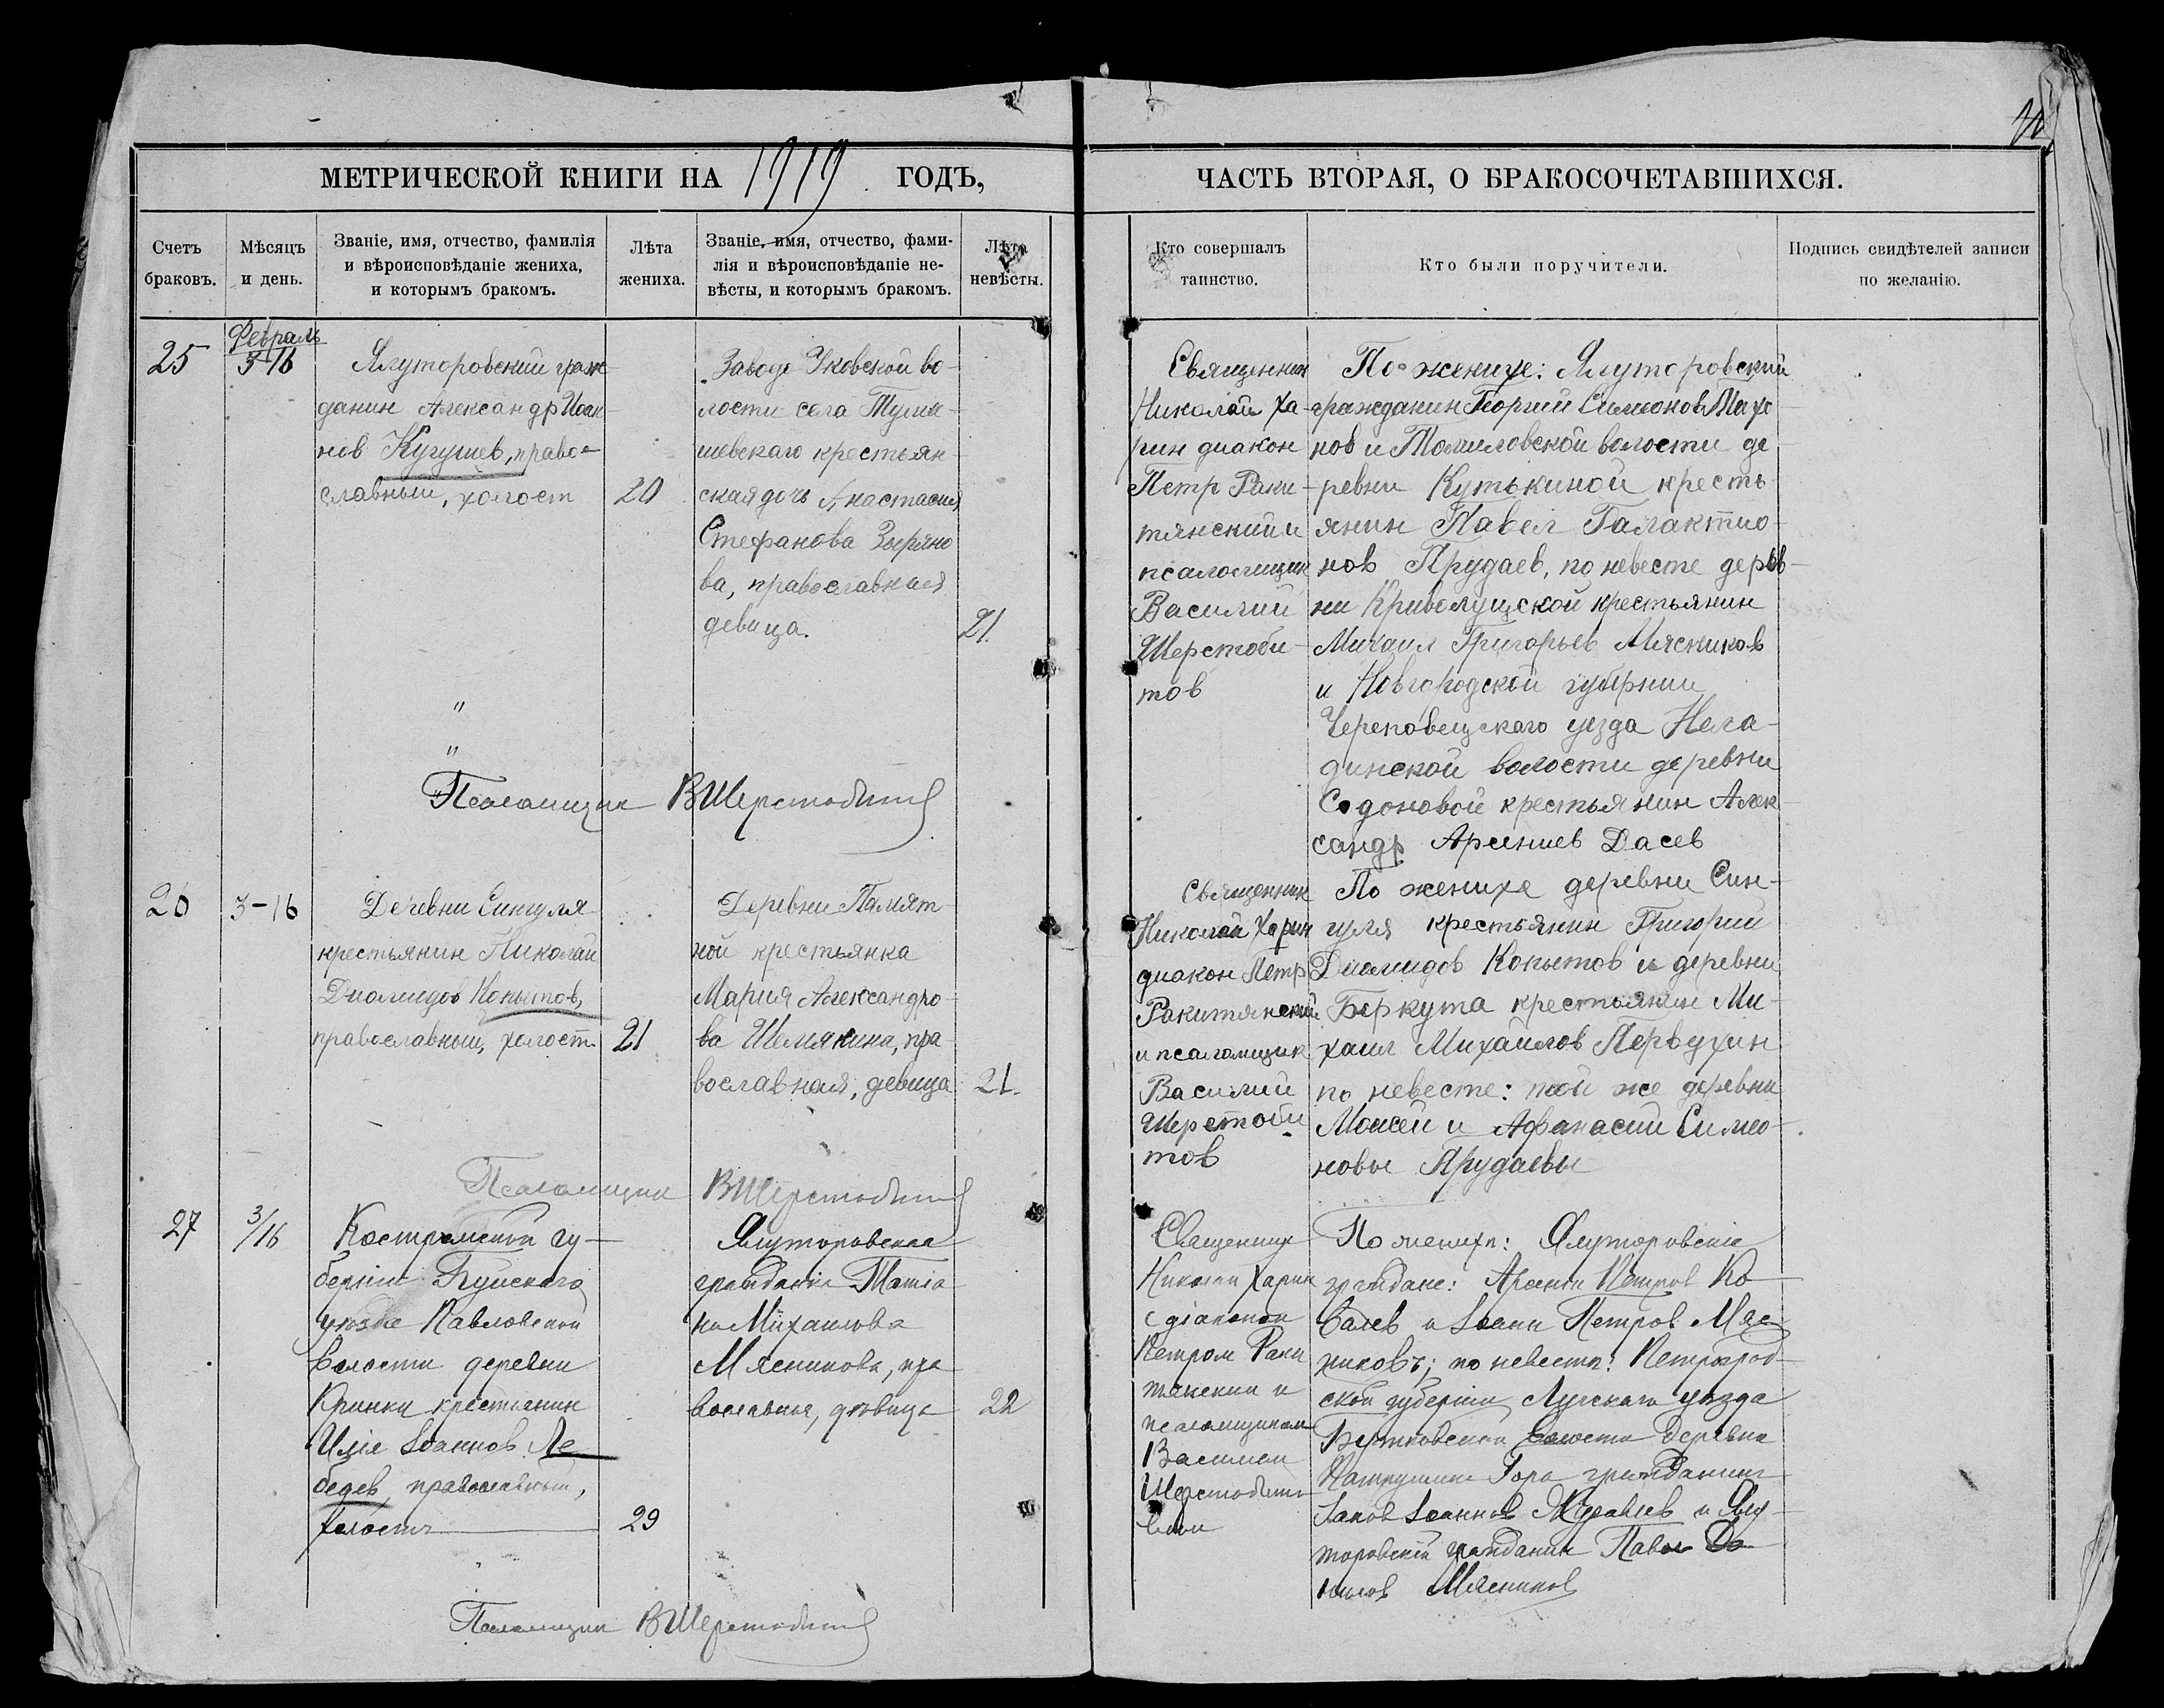 МЕТРИЧЕСКОЙ КНИГИ НА 1919 ГОДЪ,
ЧАСТЬ ВТОРАЯ, О БРАКОСОЧЕТАВШИХСЯ.
Счетъ
браковъ.
Мѣсяцъ
и день.
Званіе, имя, отчество, фамилія
и вѣроисповѣданіе жениха,
и которымъ бракомъ.
Лѣта
жениха.
Званіе, имя, отчество, фами-
лія и вѣроисповѣданіе не-
вѣсты, и которымъ бракомъ.
Лѣта
невѣсты.
Кто совершалъ
таинство.
Кто были поручители.
Подпись свидѣтелей записи
по желанію.
25
Февраль
3-16
Ялуторовский граж-
данин Александр Иоан-
нов Кугушев, право-
славный, холост
20
Заводо Уковской во-
лости села
шевскаго крестьян-
ская дочь Анастасия
Стефанова Зыряно
ва, православная
девица.
21.
Священник
Николай Ха-
рин диакон
Петр Раки-
тянский и
псаломщик
Василий
Шерстоби-
тов
По женихе: Ялуторовский
гражданин Георгий Симеонов
нов и Томиловской волости де
ревни Кутькиной кресть-
янин Павел Галактио-
нов Прудаев, по невесте дерев-
ни Криволуцской крестьянин
Михаил Григорьев Мясников
и Новгородской губернии
Череповецскаго уезда Нела-
динской волости деревни
Содоновой крестьянин Алек-
сандр Арсениев Дасев
Псаломщик ВШерстобитов
26
3-16
Деревни Сингуля
крестьянин Николай
Диомидов Копытов,
православный, холост
21
Деревни Памят-
ной крестьянка
Мария Александро-
ва Шемякина, пра-
вославная, девица
21.
Священник
Николай Харин
диакон Петр
Ракитянский
и псаломщик
Василий
Шерстоби
тов
По женихе деревни Син-
гуля крестьянин Григорий
Диомидов Копытов и деревни
Беркута крестьянин Ми-
хаил Михайлов Первухин
по невесте: той же деревни
Моисей и Афанасий Симео-
новы Прудаевы
Псаломщик ВШерстобитов
27
3/16
Костромской гу-
берніи Буйскаго
уезда Павловской
волости деревни
Кринки крестьянин
Илія Іоаннов Ле-
бедев, православный,
холостъ
29
Ялуторовская
гражданка Татіа
на Михаилова
Мясникова, пра
вославная, девица
22
Священник
Николай Харин
с діаконом
Петром Раки
тянским и
псаломщиком
Василием
Шерстобито
вым
По женихе: Ялуторовскіе
граждане: Арсеній Петров Ко-
валев и Іоанн Петров Мяс-
никовъ; по невесте: Петроград-
ской губерніи Лугскаго уезда
волости деревни
Гора гражданин
Іаков Іоаннов Журавлев и Ялу-
торовскій гражданин Павел Да-
нилов Мясников
Псаломщик ВШерстобитов